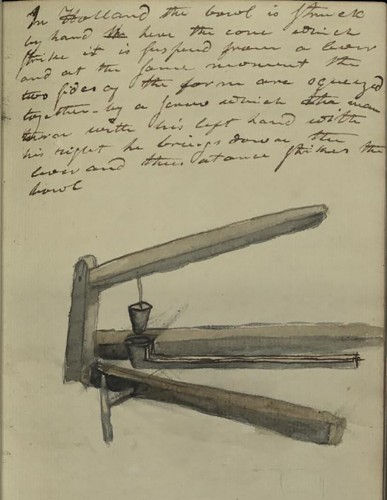 In Holland the bowl is struck
by hand here the cone which
strike it is suspend from a lever
and at the same moment the
two sides of the form are sqeezed
together by a screw which the man
with his left hand with
his right he brings down the
lever and thus at once strikes the
bowl